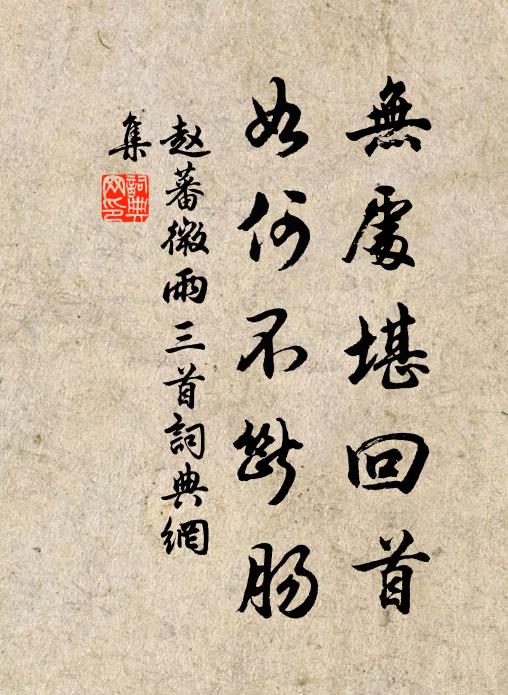 無處堪回首
如何不斷腸
赵蕃微雨三首詞典網
集
詞典
网印